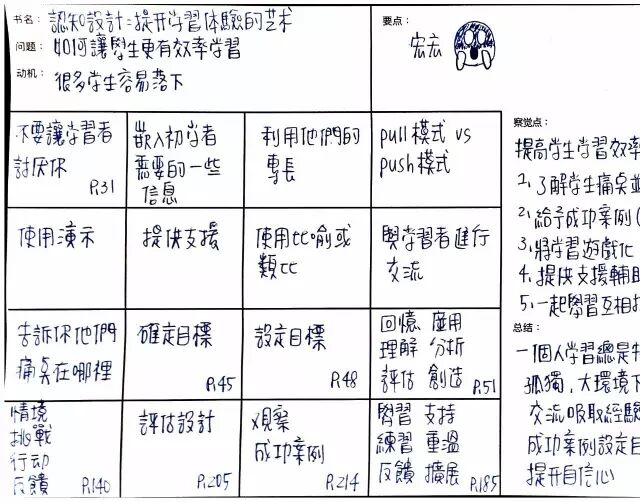 书名： 認知設計：提升学習体驗的艺术
问题： 如何讓學生更有效率学習
动机： 很多学生容易落下
要点：
宏宏
不要讓学習者
討厌你
P.31
嵌入初学者
需要的一些
信息
利用他們的
專長
pull模式 vs
push模式
使用演示
提供支援
使用比喻或
類比
與学習者進行
交流
告訴你他們
痛奌在哪裡
確定目標
P.45
設定目標
P.48
回憶 應用
理解 分析
評估 創造
P.51
情境
挑戰
行动
反饋
P.140
評估設計
P.205
观察
成功案例
P.214
學習 支持
練習 重溫
反饋 擴展
P.185
察觉点：
提高学生学習效率
1、了解学生痛奌並
2、給予成功案例(
3、將学習遊戲化
4、提供支援輔助
5、一起學習互相
总结：
一個人学習總是
孤獨，大環境下
交流吸取經驗
成功案例設定目
提升自信心